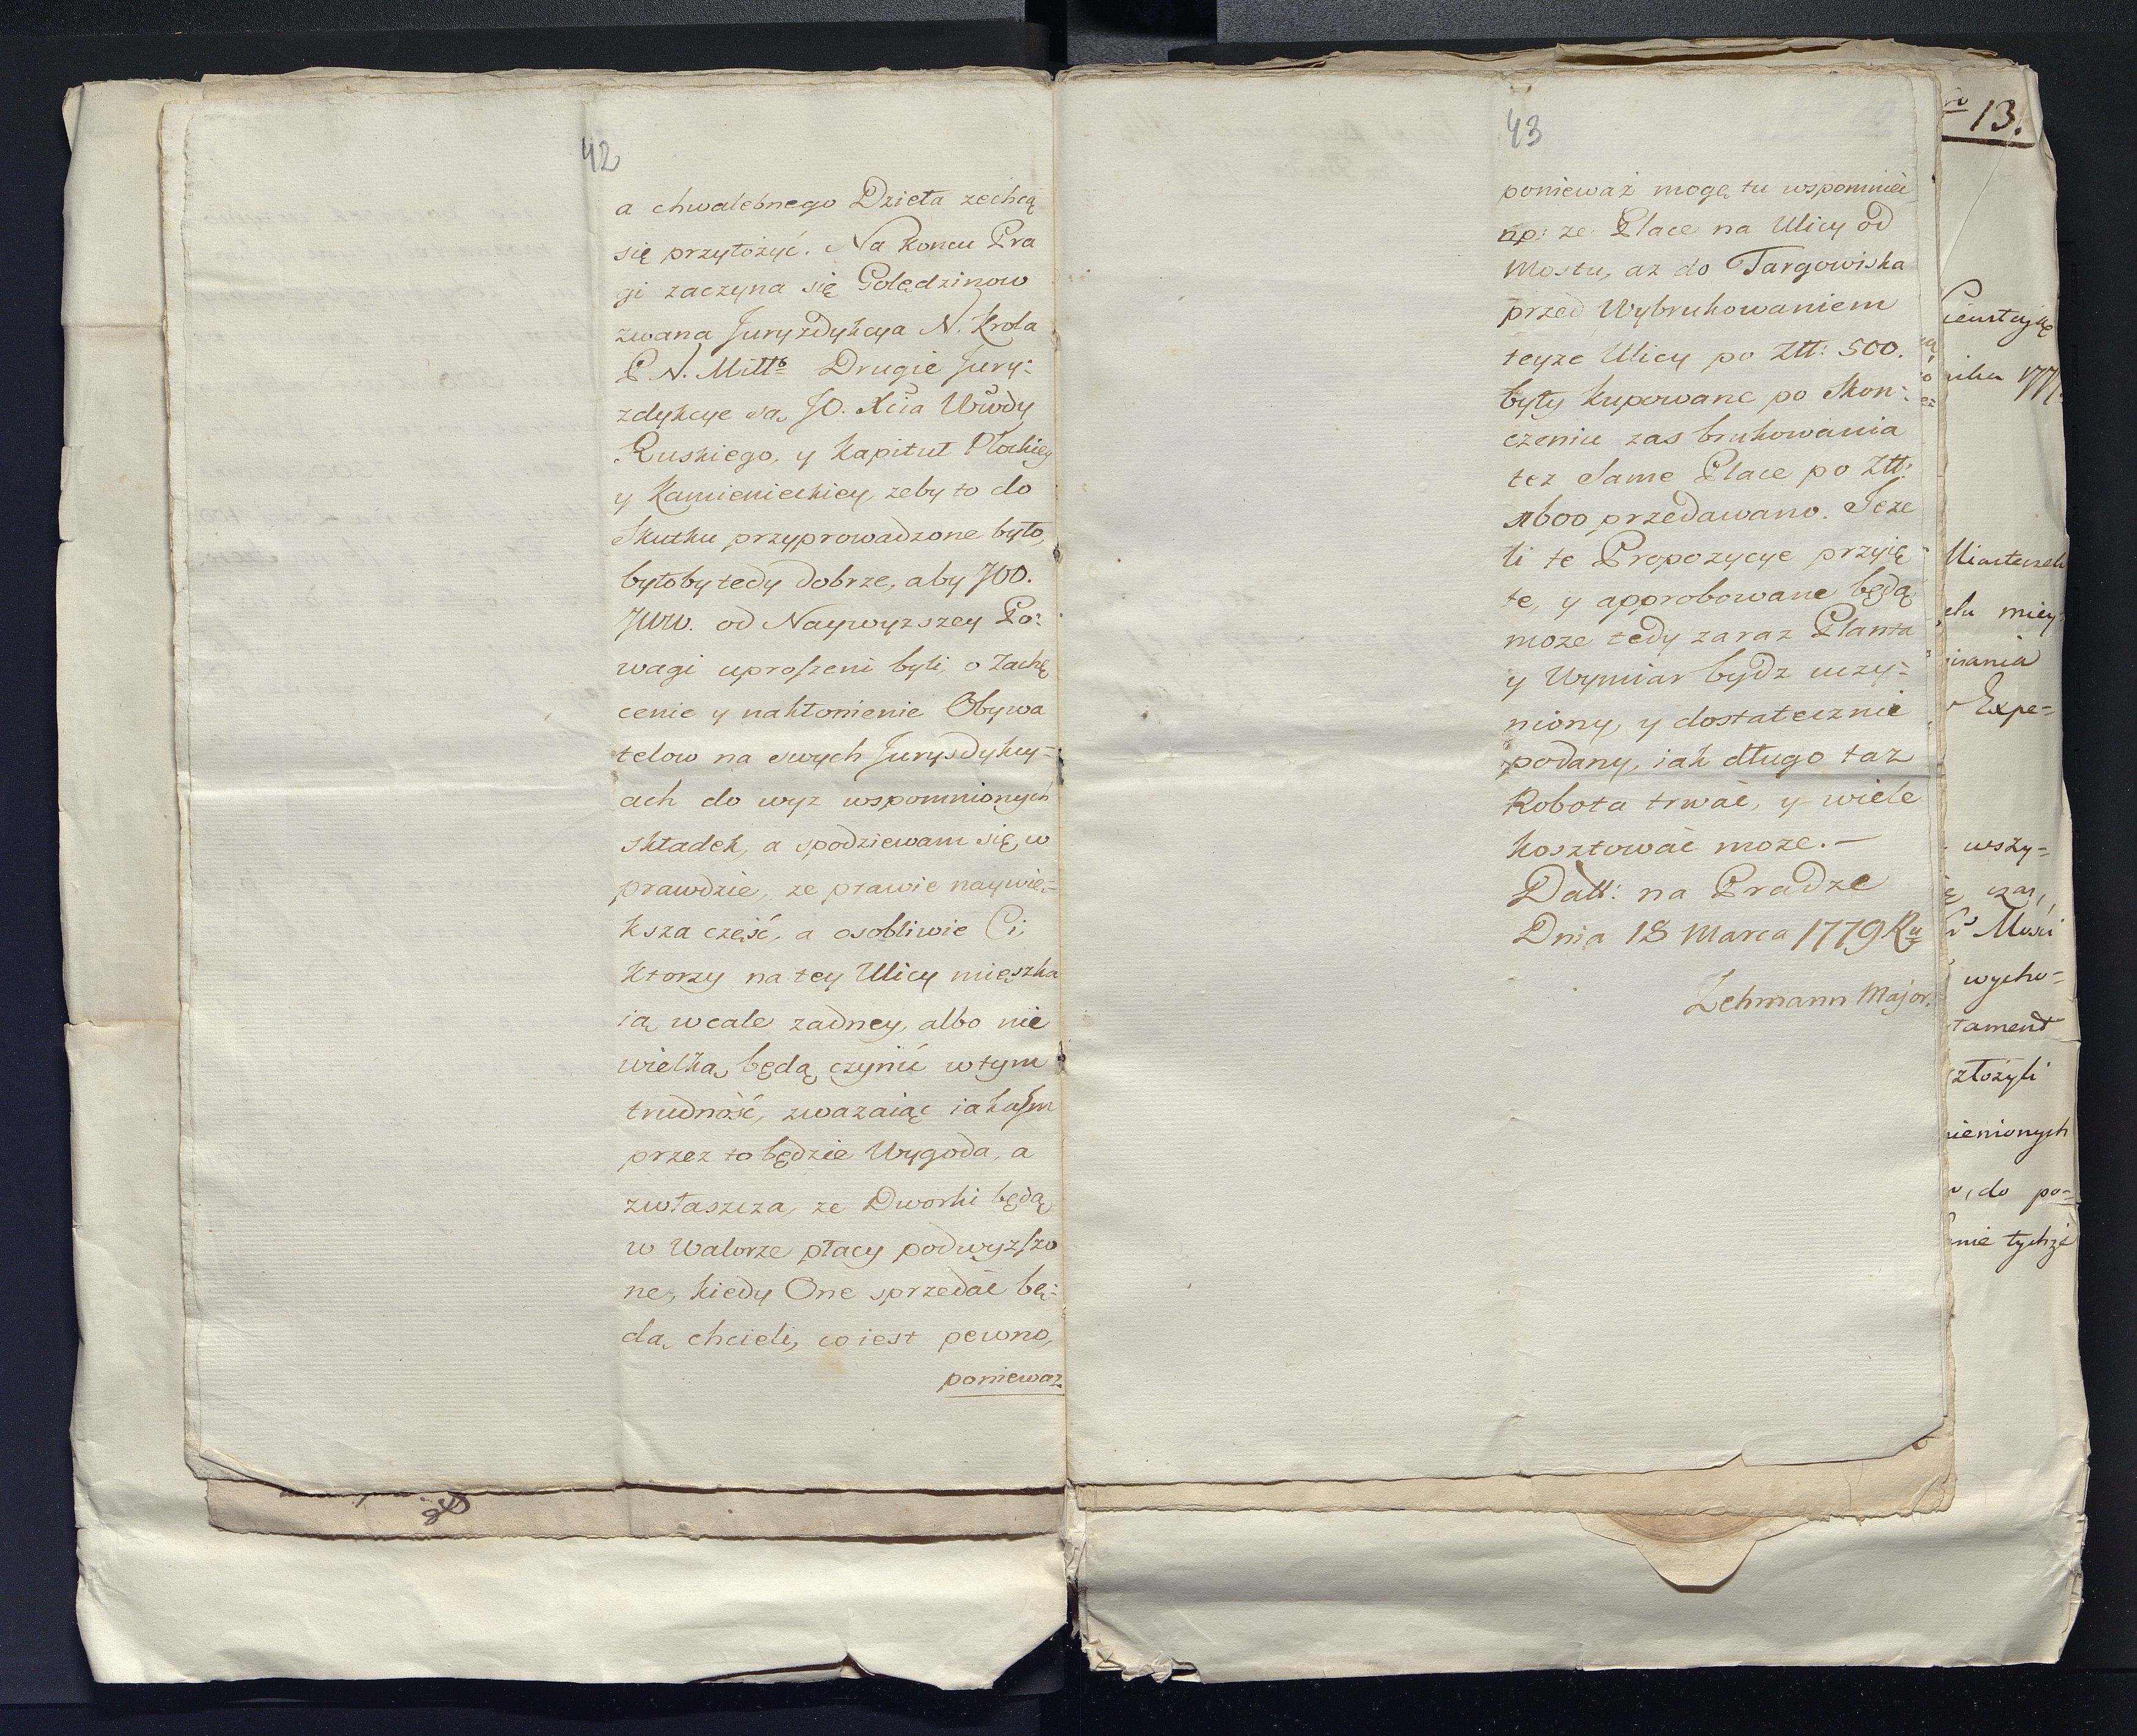 42
a chwalebnego Dzieła zechcą
się przyłożyć. Na Koncu Pra
gi zaczyna się Golędzinow
zwana Juryzdykcya N. Krola
P. N. Miłło Drugie Jury:
zdykcye są, JO. Xcia Wwdy
Ruskiego, y Kapituł Płockiey
y Kamienieckiey, zeby to do
Skutku przyprowadzone było,
byłoby tedy dobrze, aby JOO.
JWW. od Naywyzszey Po:
wagi uproszeni byli, o Zachę
cenie y nakłonienie Obywa
telow na swych Jurysdykcy=
ach do wyz wspomnionych
składek, a spodziewam się, w
prawdzie, ze prawie naywię=
ksza część, a osobliwie Ci,
Ktorzy na tey Ulicy mięszka
ią, wcale zadney, albo nie
wielką, będą czynić w tym
trudność, zwazaiąc iaka Im
przez to będzie Wygoda, a
zwłaszcza, ze Dworki będą
w Walorze płacy podwyzszo
ne, kiedy One sprzedać bę:
dą chcieli, co iest pewno,
poniewaz
43
ponieważ mogę tu wspomnieć
np: ze Place na Ulicy od
Mostu, az do Targowiska
przed Wybrukowaniem
teyze Ulicy po Ztt: 500.
były kupowane po Skon:
czeniu zas brukowania
tez Same Place po Ztt:
1600 przedawano. Jeze
li te Propozycye przyię
te, y approbowane będą
moze tedy zaraz Planta
y Wymiar bydz uczy=
niony, y dostatecznie
podany, iak długo taz
Robota trwać, y wiele
kosztować moze. —
Datt: na Pradze
Dnia 18 Marca 1779 Ru
Lehmann Major.
ro 13.
1777.
Miasteczek
miey=
Expe=
wszy=
czas,
Mości
wycho=
tament
złożyli
nienionych
do po=
nie tychże